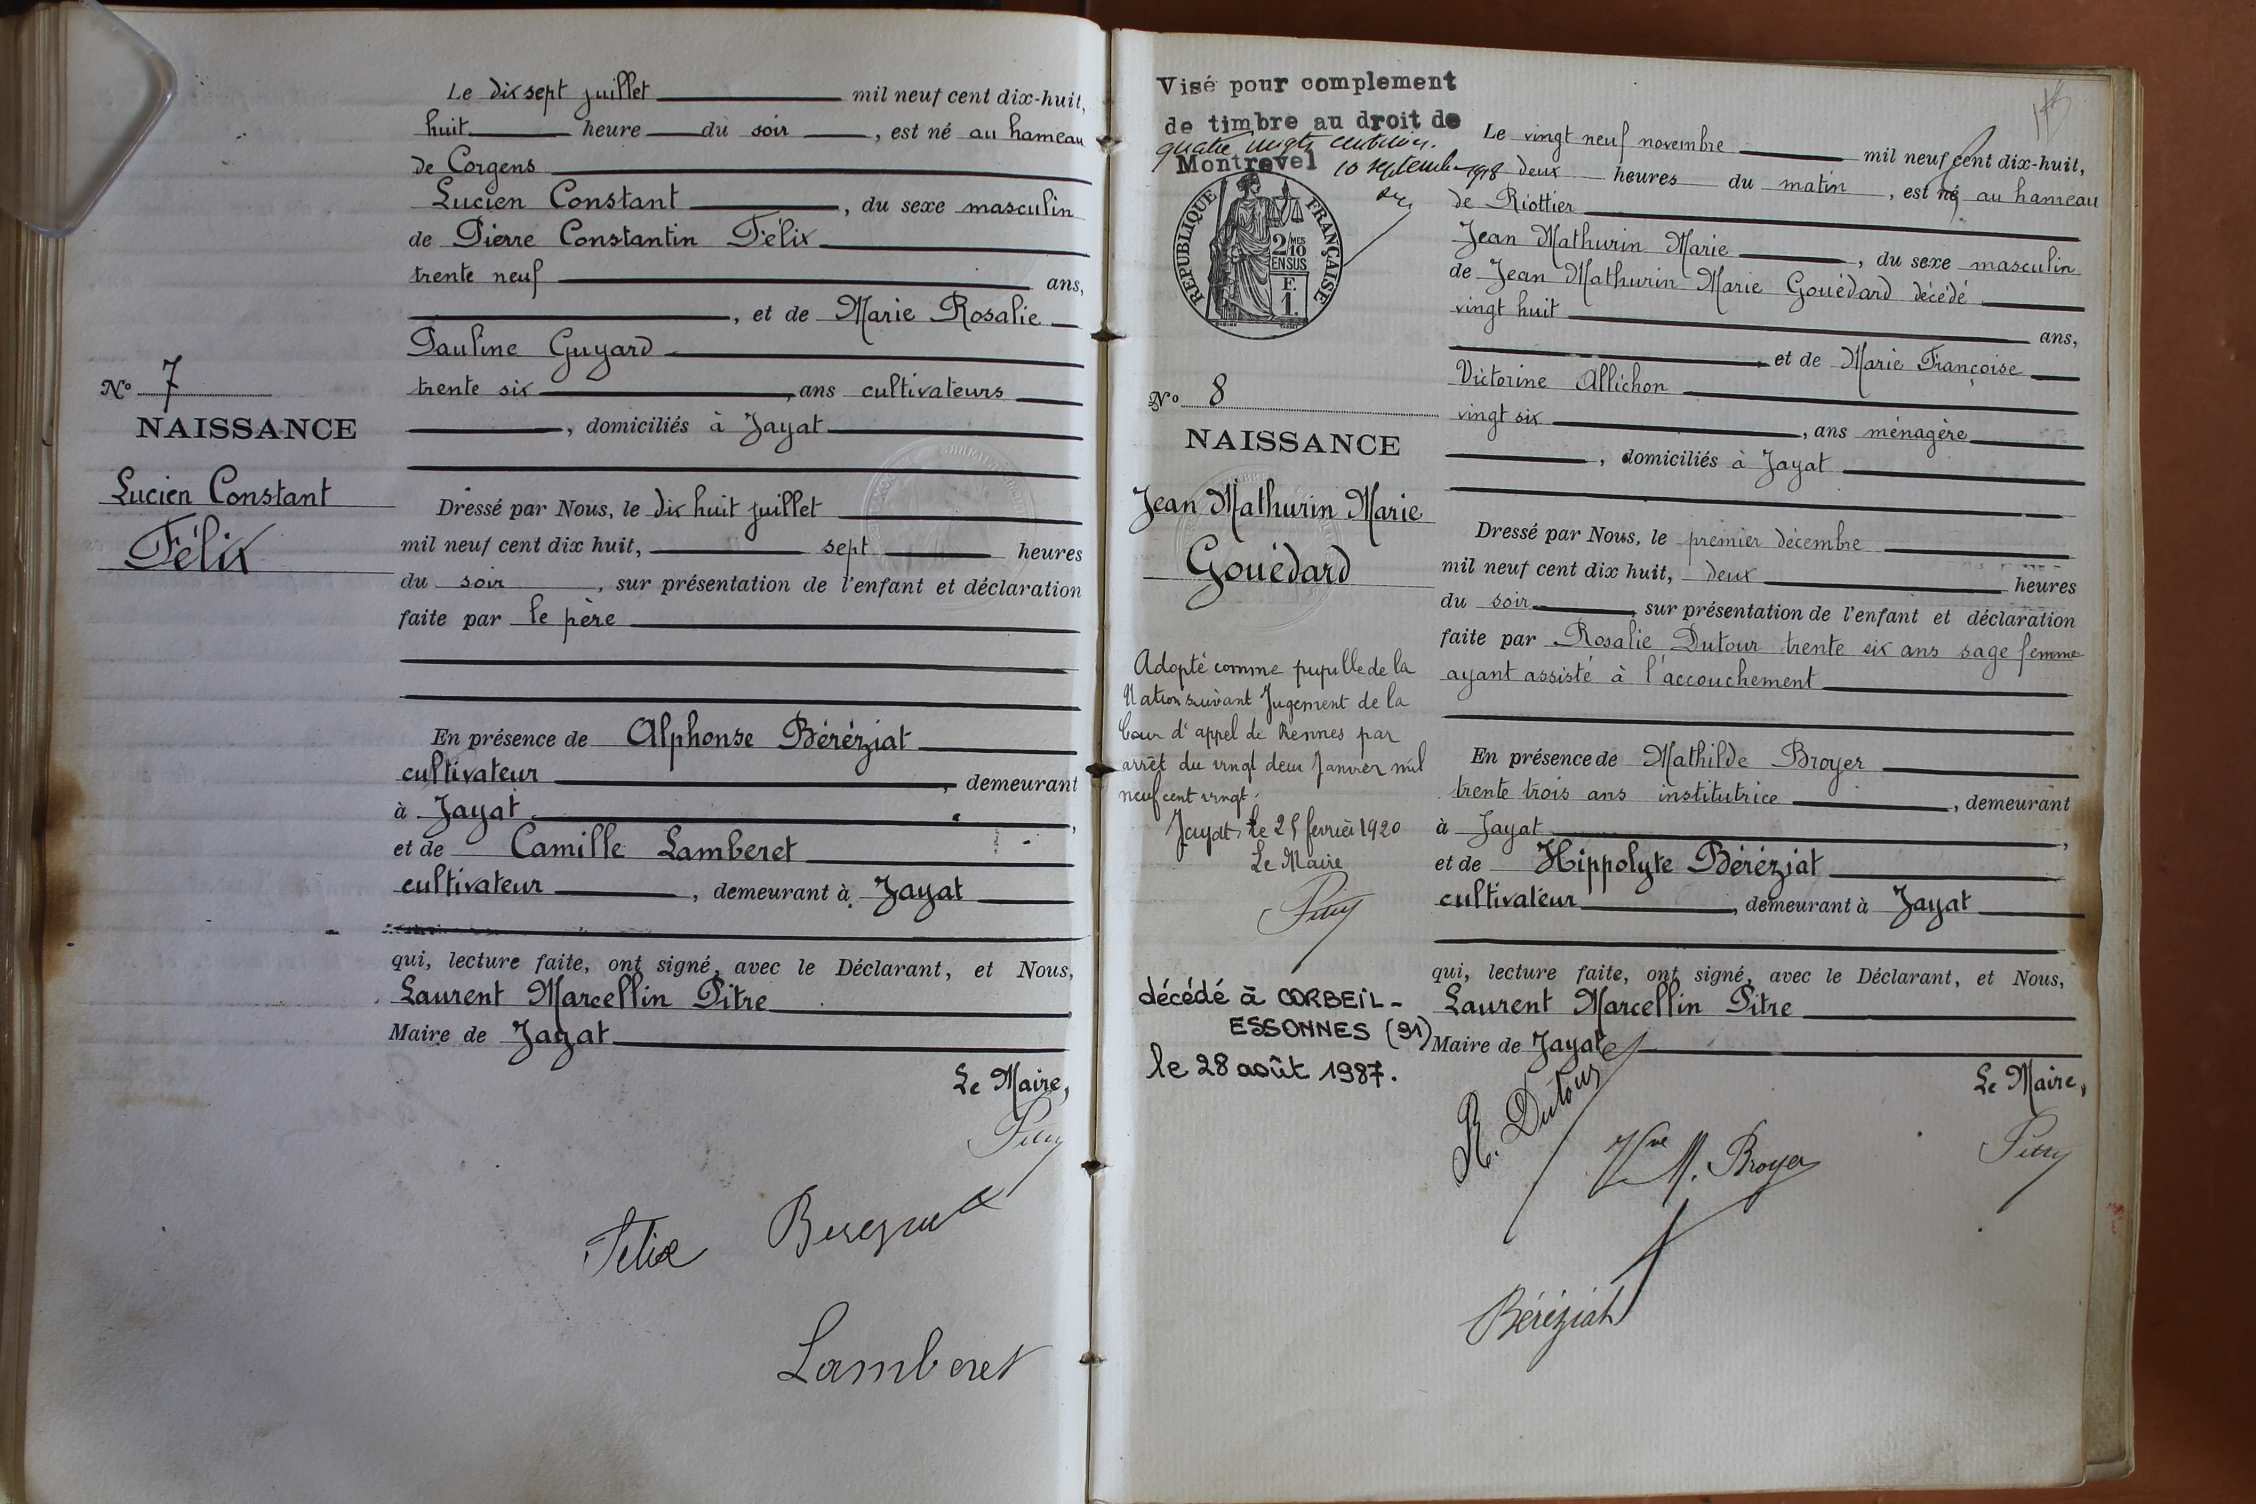 Le dix sept juillet mil neuf cent dix-huit,
huit heure du soir, est né au hameau
de Corgens
Lucien Constant, du sexe masculin
de Pierre Constantin Félix
trente neuf ans,
, et de Marie Rosalie
Pauline Guyard
trente six, ans cultivateurs
, domiciliés à Jayat
Dressé par Nous, le dix huit juillet
mil neuf cent dix huit, sept heures
du soir, sur présentation de l'enfant et déclaration
faite par le père
En présence de Alphonse Béréziat
cultivateur, demeurant
à Jayat,
et de Camille Lamberet
cultivateur, demeurant à Jayat
qui, lecture faite, ont signé, avec le Déclarant, et Nous,
Laurent Marcellin Pitre
Maire de Jayat
Le Maire,
Félix
Lamberet
No 7
NAISSANCE
Lucien Constant
Félix
Visé pour complement
de timbre au droit de
quatre vingts centimes.
Montrevel 10 septembre 1918
REPUBLIQUE FRANÇAISE
2/10 MES
EN SUS
F.
1.
No 8
NAISSANCE
Jean Mathurin Marie
Gouédard
Adopté comme pupille de la
Nation suivant Jugement de la
Cour d'appel de Rennes par
arrêt du vingt deux Janvier mil
neuf cent vingt.
Jayat, le 25 février 1920
Le Maire
décédé à CORBEIL-
ESSONNES (91)
le 28 août 1987.
Le vingt neuf novembre mil neuf cent dix-huit,
deux heures du matin, est né au hameau
de Riottier
Jean Mathurin Marie, du sexe masculin
de Jean Mathurin Marie Gouédard décédé
vingt huit ans,
et de Marie Françoise
Victorine Allichon
vingt six, ans ménagère
, domiciliés à Jayat
Dressé par Nous, le premier décembre
mil neuf cent dix huit, deux heures
du soir, sur présentation de l'enfant et déclaration
faite par Rosalie Dutour trente six ans sage femme
ayant assisté à l'accouchement
En présence de Mathilde Broyer
trente trois ans institutrice, demeurant
à Jayat,
et de Hippolyte Béréziat
cultivateur, demeurant à Jayat
qui, lecture faite, ont signé, avec le Déclarant, et Nous,
Laurent Marcellin Pitre
Maire de Jayat
Le Maire,
R. Dutour
M. Broyer
Béréziat